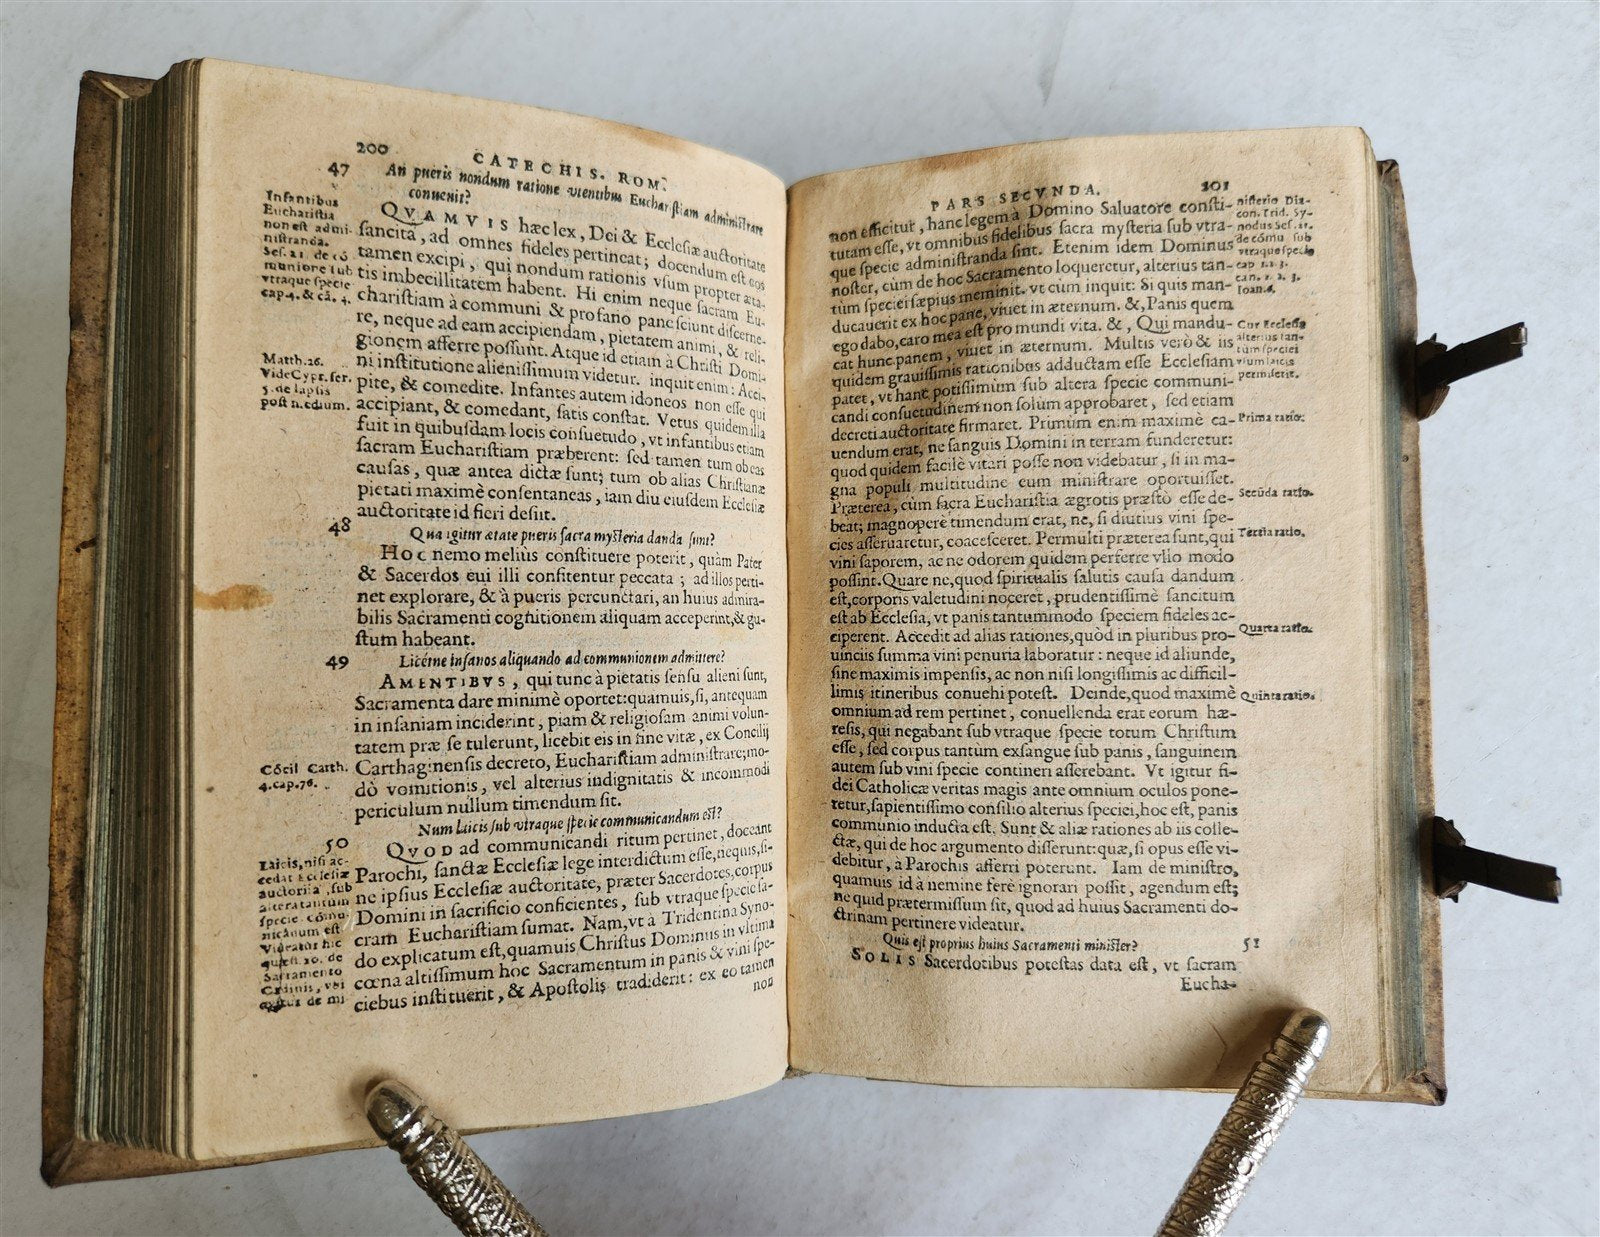 200
CATECHIS. ROM.
47
An pueris nondum ratione vtentibus Eucharistiam administrare
conuenit?
Infantibus
Eucharistia
non est admi-
nistranda.
Ses. 21. de cō
munione sub
vtraque specie
cap. 4. & cā. 4.
QVAMVIS hæc lex, Dei & Ecclesiæ auctoritate
sancita, ad omnes fideles pertineat; docendum est eos
tamen excipi, qui nondum rationis vsum propter æta-
tis imbecillitatem habent. Hi enim neque sacram Eu-
charistiam à communi & profano pane sciunt discerne-
re, neque ad eam accipiendam, pietatem animi, & reli-
gionem afferre possunt. Atque id etiam à Christi Domi-
ni institutione alienissimum videtur. inquit enim: Acci-
pite, & comedite. Infantes autem idoneos non esse qui
accipiant, & comedant, satis constat. Vetus quidem illa
fuit in quibusdam locis consuetudo, vt infantibus etiam
sacram Eucharistiam præberent: sed tamen tum ob eas
causas, quæ antea dictæ sunt; tum ob alias Christianæ
pietati maximè consentaneas, iam diu eiusdem Ecclesiæ
auctoritate id fieri desiit.
Matth. 26.
Vide Cypr. ser.
5. de lapsis
post medium.
48
Qua igitur ætate pueris sacra mysteria danda sunt?
HOC nemo meliùs constituere poterit, quàm Pater
& Sacerdos cui illi confitentur peccata; ad illos perti-
net explorare, & à pueris percunctari, an huius admira-
bilis Sacramenti cognitionem aliquam acceperint, & gu-
stum habeant.
49
Licetne insanos aliquando ad communionem admittere?
AMENTIBVS, qui tunc à pietatis sensu alieni sunt,
Sacramenta dare minimè oportet: quamuis, si, antequam
in insaniam inciderint, piam & religiosam animi volun-
tatem præ se tulerunt, licebit eis in fine vitæ, ex Concilij
Carthaginensis decreto, Eucharistiam administrare; mo-
dò vomitionis, vel alterius indignitatis & incommodi
periculum nullum timendum sit.
Cōcil Carth.
4. cap. 76.
50
Num laicis sub vtraque specie communicandum est?
QVOD ad communicandi ritum pertinet, doceant
Parochi, sanctæ Ecclesiæ lege interdictum esse, nequis, si-
ne ipsius Ecclesiæ auctoritate, præter Sacerdotes, corpus
Domini in sacrificio conficientes, sub vtraque specie sa-
cram Eucharistiam sumat. Nam, vt à Tridentina Syno-
do explicatum est, quamuis Christus Dominus in vltima
cœna altissimum hoc Sacramentum in panis & vini spe-
ciebus instituerit, & Apostolis tradiderit: ex eo tamen
non
Laicis, nisi ac-
cedat Ecclesiæ
auctorita, sub
altera tantum
specie cōmu-
nicandum est
Videatur hic
quæst. 10. de
Sacramento
Ordinis, vbi
agitur de mi-
PARS SECVNDA.
201
non efficitur, hanc legem à Domino Saluatore consti-
tutam esse, vt omnibus fidelibus sacra mysteria sub vtra-
que specie administranda sint. Etenim idem Dominus
noster, cùm de hoc Sacramento loqueretur, alterius tan-
tùm speciei sæpius meminit. vt cum inquit: Si quis man-
ducauerit ex hoc pane, viuet in æternum. &, Panis quem
ego dabo, caro mea est pro mundi vita. &, Qui mandu-
cat hunc panem, viuet in æternum. Multis verò & iis
quidem grauissimis rationibus adductam esse Ecclesiam
patet, vt hanc potissimùm sub altera specie communi-
candi consuetudinem non solum approbaret, sed etiam
decreti auctoritate firmaret. Primùm enim maximè ca-
uendum erat, ne sanguis Domini in terram funderetur:
quod quidem facilè vitari posse non videbatur, si in ma-
gna populi multitudine eum ministrare oportuisset.
Præterea, cùm sacra Eucharistia ægrotis præstò esse de-
beat; magnopere timendum erat, ne, si diutius vini spe-
cies asseruaretur, coacesceret. Permulti præterea sunt, qui
vini saporem, ac ne odorem quidem perferre vllo modo
possint. Quare ne, quod spiritualis salutis causa dandum
est, corporis valetudini noceret, prudentissimè sancitum
est ab Ecclesia, vt panis tantummodo speciem fideles ac-
ciperent. Accedit ad alias rationes, quòd in pluribus pro-
uinciis summa vini penuria laboratur: neque id aliunde,
sine maximis impensis, ac non nisi longissimis ac difficil-
limis itineribus conuehi potest. Deinde, quod maximè
omnium ad rem pertinet, conuellenda erat eorum hæ-
resis, qui negabant sub vtraque specie totum Christum
esse, sed corpus tantum exsangue sub panis, sanguinem
autem sub vini specie contineri asserebant. Vt igitur fi-
dei Catholicæ veritas magis ante omnium oculos pone-
retur, sapientissimo consilio alterius speciei, hoc est, panis
communio inducta est. Sunt & aliæ rationes ab iis colle-
ctæ, qui de hoc argumento disserunt: quæ, si opus esse vi-
debitur, à Parochis afferri poterunt. Iam de ministro,
quamuis id à nemine ferè ignorari possit, agendum est;
ne quid prætermissum sit, quod ad huius Sacramenti do-
ctrinam pertinere videatur.
Quis est proprius huius Sacramenti minister?
51
SOLIS Sacerdotibus potestas data est, vt sacram
Eucha-
nisterio Dia-
con. Trid. Sy-
nodus Ses. 21.
de cōmu sub
vtraque specie
cap 1. 2. 3.
can. 1. 2. 3.
Ioan. 6.
Cur Ecclesia
alterius tan-
tum speciei
vsum laicis
permiserit.
Prima ratio.
Secūda ratio.
Tertia ratio.
Quarta ratio.
Quinta ratio.